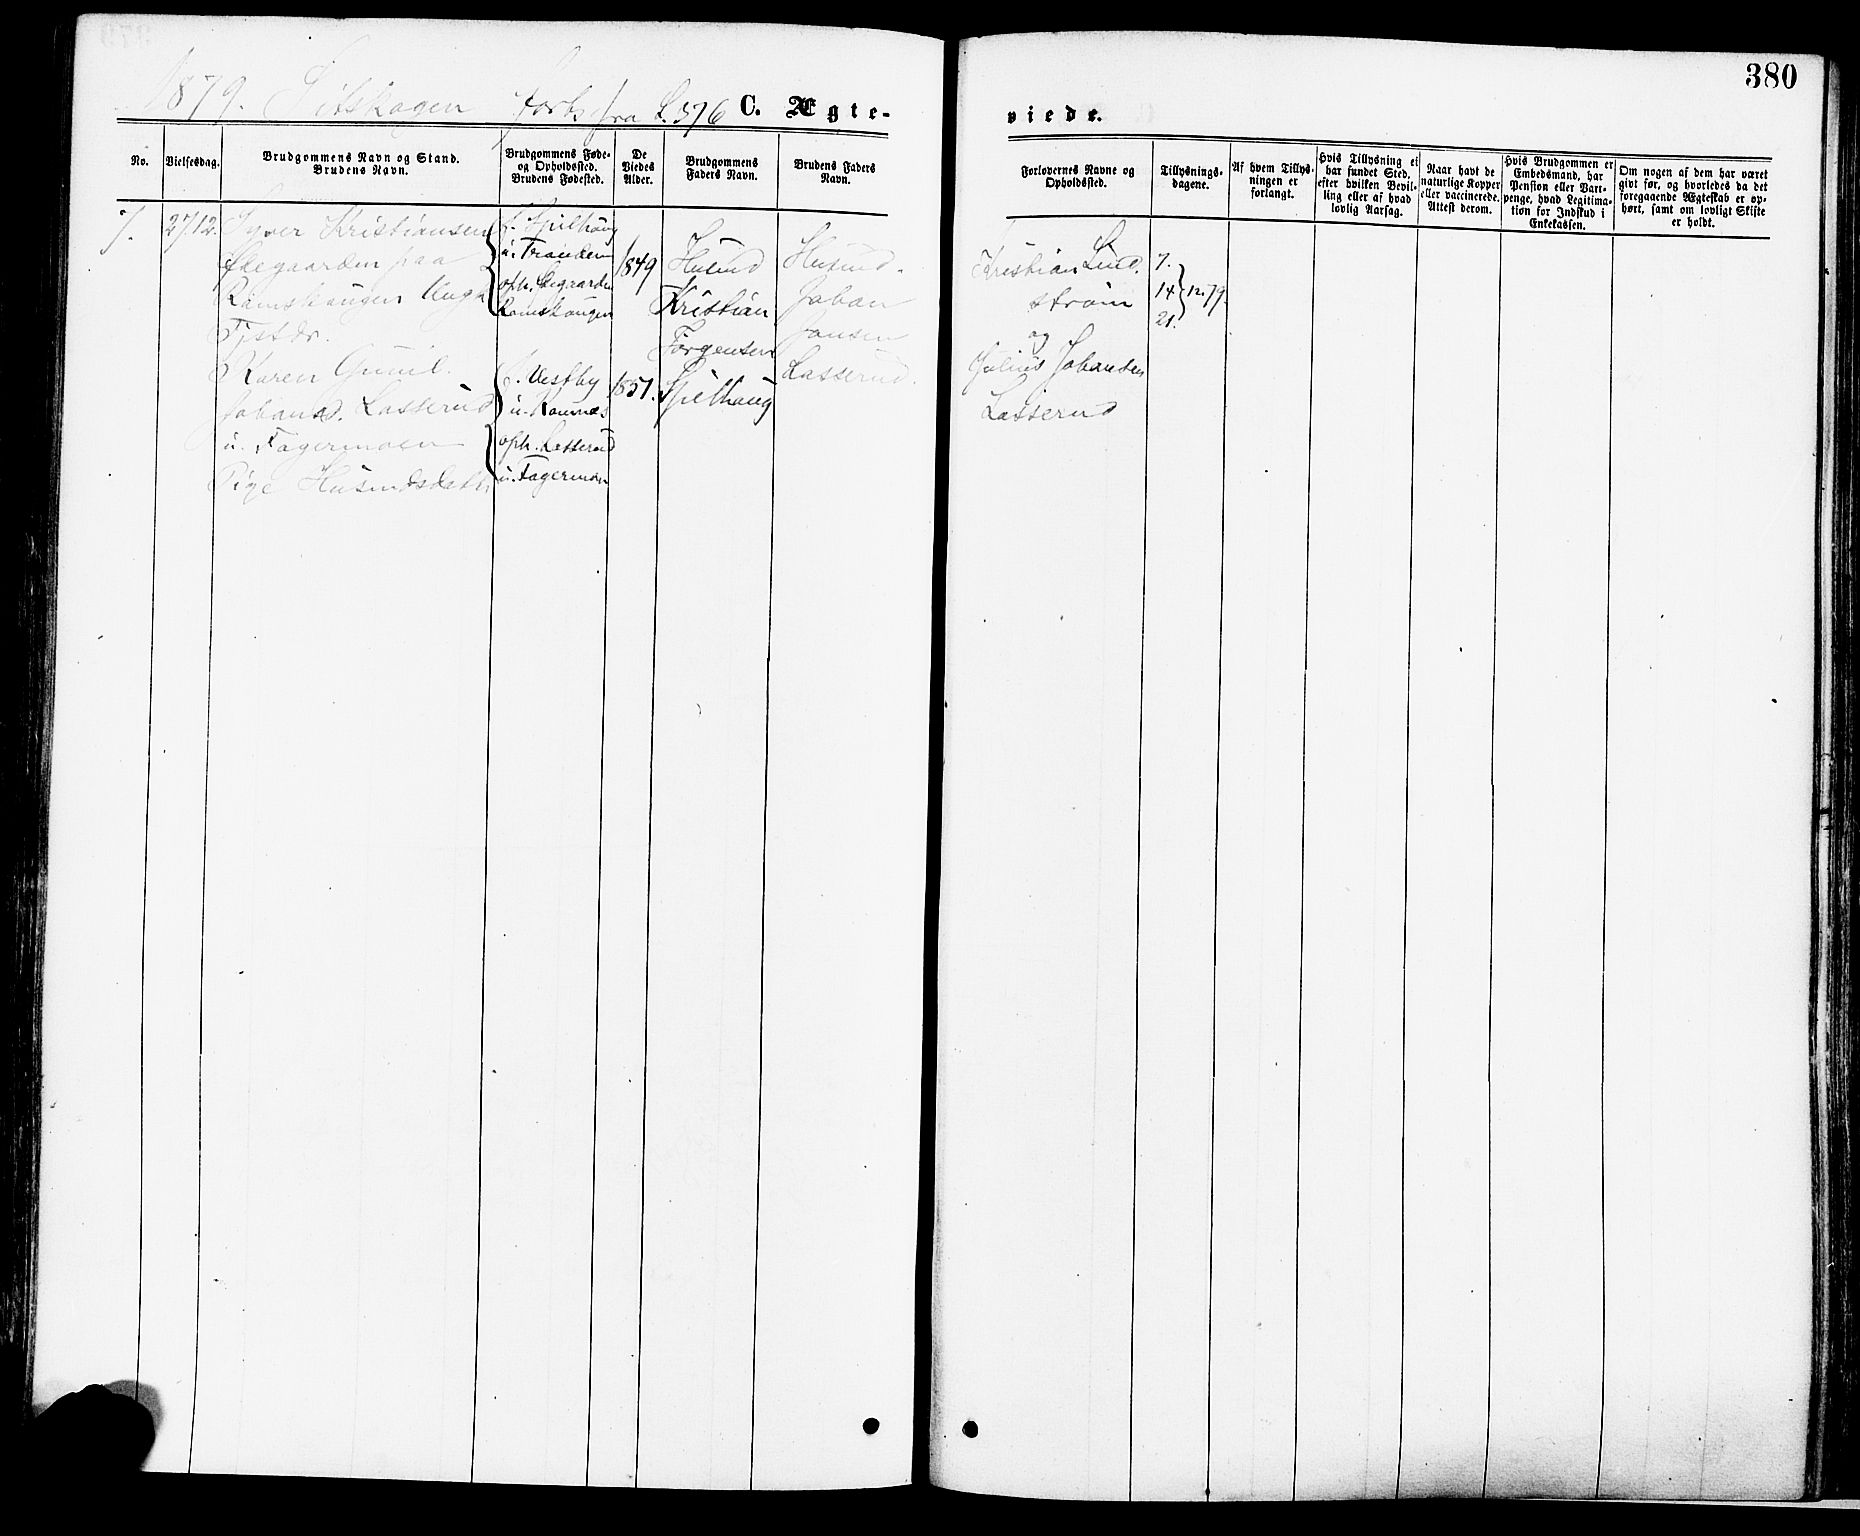 380
1879. Setskogen forts fra S. 376 C. Ægte-
viede.
No.
Vielsesdag.
Brudgommens Navn og Stand.
Brudens Navn.
Brudgommens Føde-
og Opholdssted.
Brudens Fødested.
De
Viedes
Alder.
Brudgommens
Faders Navn.
Brudens Faders
Navn.
Forlovernes Navne og
Opholdssted.
Tillysnings-
dagene.
Af hvem Tillys-
ningen er
forlangt.
Hvis Tillysning ei
har fundet Sted,
efter hvilken Bevil-
ling eller af hvad
lovlig Aarsag.
Naar havt de
naturlige Kopper
eller vaccinerede.
Attest derom.
Hvis Brudgommen er
Embedsmand, har
Pension eller Vart-
penge, hvad Legitima-
tion for Indskud i
Enkekassen.
Om nogen af dem har været
givt før, og hvorledes da det
foregaaende Ægteskab er op-
hørt, samt om lovligt Skifte
er holdt.
7.
27/12.
Syver Kristiansen
Ødegaarden paa
Ramskaugen Ungk
Tjstdr.
Karen Gunil.
Johansd. Lasserud
u. Fagermoen
Pige Husmdsdattr
f. Spilhaug
u.
oph. Øegaarden
Ramskaugen
f. Vestby
u. Kamnæs
oph. Lasserud
u. Fagermon
1849
1857.
Husmd
Kristian
Jørgensen
Spilhaug
Husmd.
Johan
Jansen
Lasserud.
Kristian Lind.
strøm
og
Julius Johansen
Lasserud
7.
14 12.79
21.